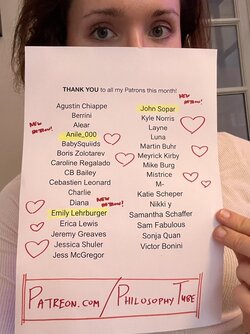 THANK YOU to all my Patrons this month!
Agustin Chiappe
Berrini
NEW PATRON!
Alear
Anile_000
BabySquiids
Boris Zolotarev
Caroline Regalado
CB Bailey
Cebastien Leonard
Charlie
NEW PATRON!
Diana
Emily Lehrburger
Erica Lewis
Jeremy Greaves
Jessica Shuler
Jess McGregor
NEW PATRON!
John Sopar
Kyle Norris
Layne
Luna
Martin Buhr
Meyrick Kirby
Mike Burg
Mistrice
M-
Katie Scheper
Nikki y
Samantha Schaffer
Sam Fabulous
Sonja Quan
Victor Bonini
PATREON.COM/PHILOSOPHYTUBE